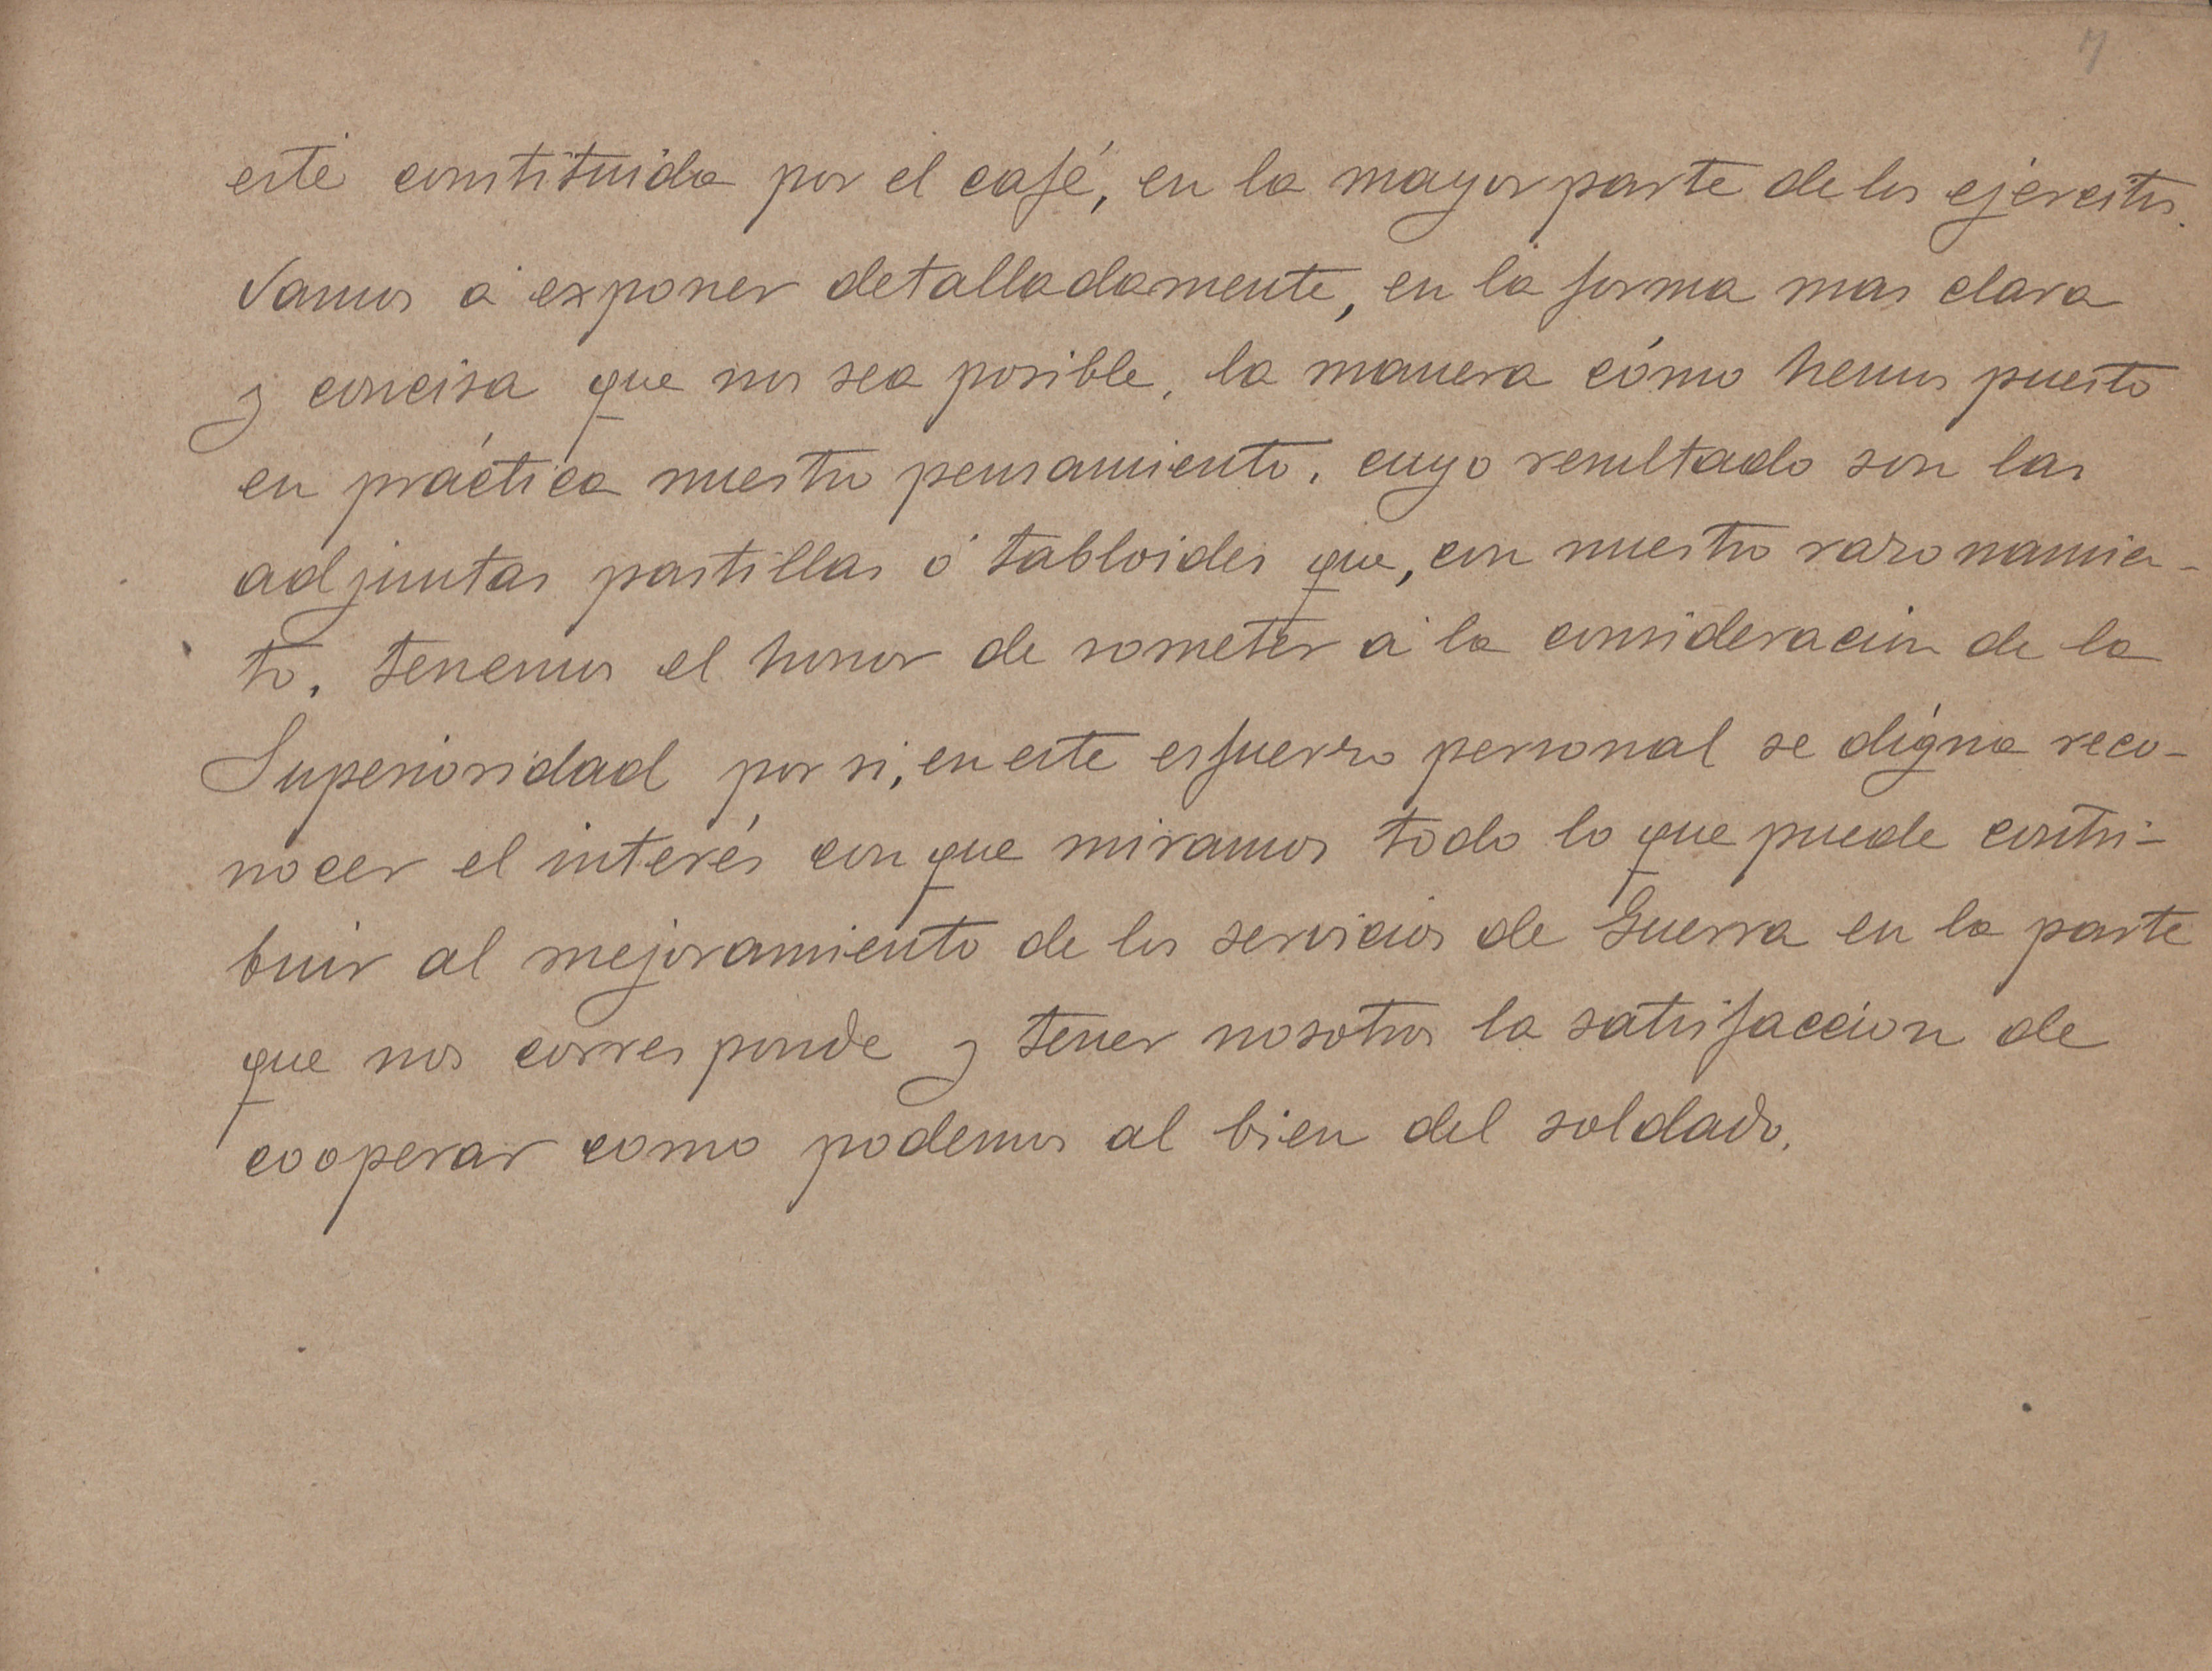 7
esté constituida por el café, en la mayor parte de los ejércitos.
Vamos á exponer detalladamente, en la forma mas clara
y concisa que nos sea posible, la manera cómo hemos puesto
en práctica nuestro pensamiento, cuyo resultado son las
adjuntas pastillas ó tabloides que, con nuestro razonamien-
to, tenemos el honor de someter á la consideración de la
Superioridad por si, en este esfuerzo personal se digna reco-
nocer el interés con que miramos todo lo que puede contri-
buir al mejoramiento de los servicios de Guerra en la parte
que nos corresponde y tener nosotros la satisfacción de
cooperar como podemos al bien del soldado.